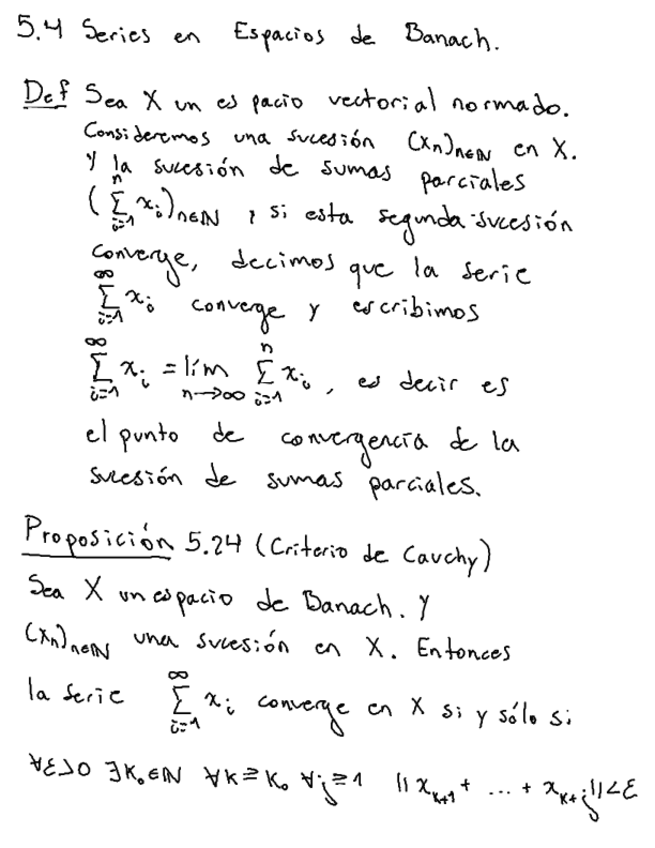 5.4 Series en Espacios de Banach.
Def Sea X un espacio vectorial normado.
Consideremos una sucesión (xₙ)ₙ∈ℕ en X.
y la sucesión de sumas parciales
(∑ᵢ₌₁ⁿ xᵢ)ₙ∈ℕ , si esta segunda sucesión
converge, decimos que la serie
∑ᵢ₌₁^∞ xᵢ converge y escribimos
∑ᵢ₌₁^∞ xᵢ = lím_{n→∞} ∑ᵢ₌₁ⁿ xᵢ, es decir es
el punto de convergencia de la
sucesión de sumas parciales.
Proposición 5.24 (Criterio de Cauchy)
Sea X un espacio de Banach. Y
(xₙ)ₙ∈ℕ una sucesión en X. Entonces
la serie ∑ᵢ₌₁^∞ xᵢ converge en X si y sólo si
∀ε>0 ∃k₀∈ℕ ∀k≥k₀ ∀j≥1 ||x_{k+1} + ... + x_{k+j}||<ε